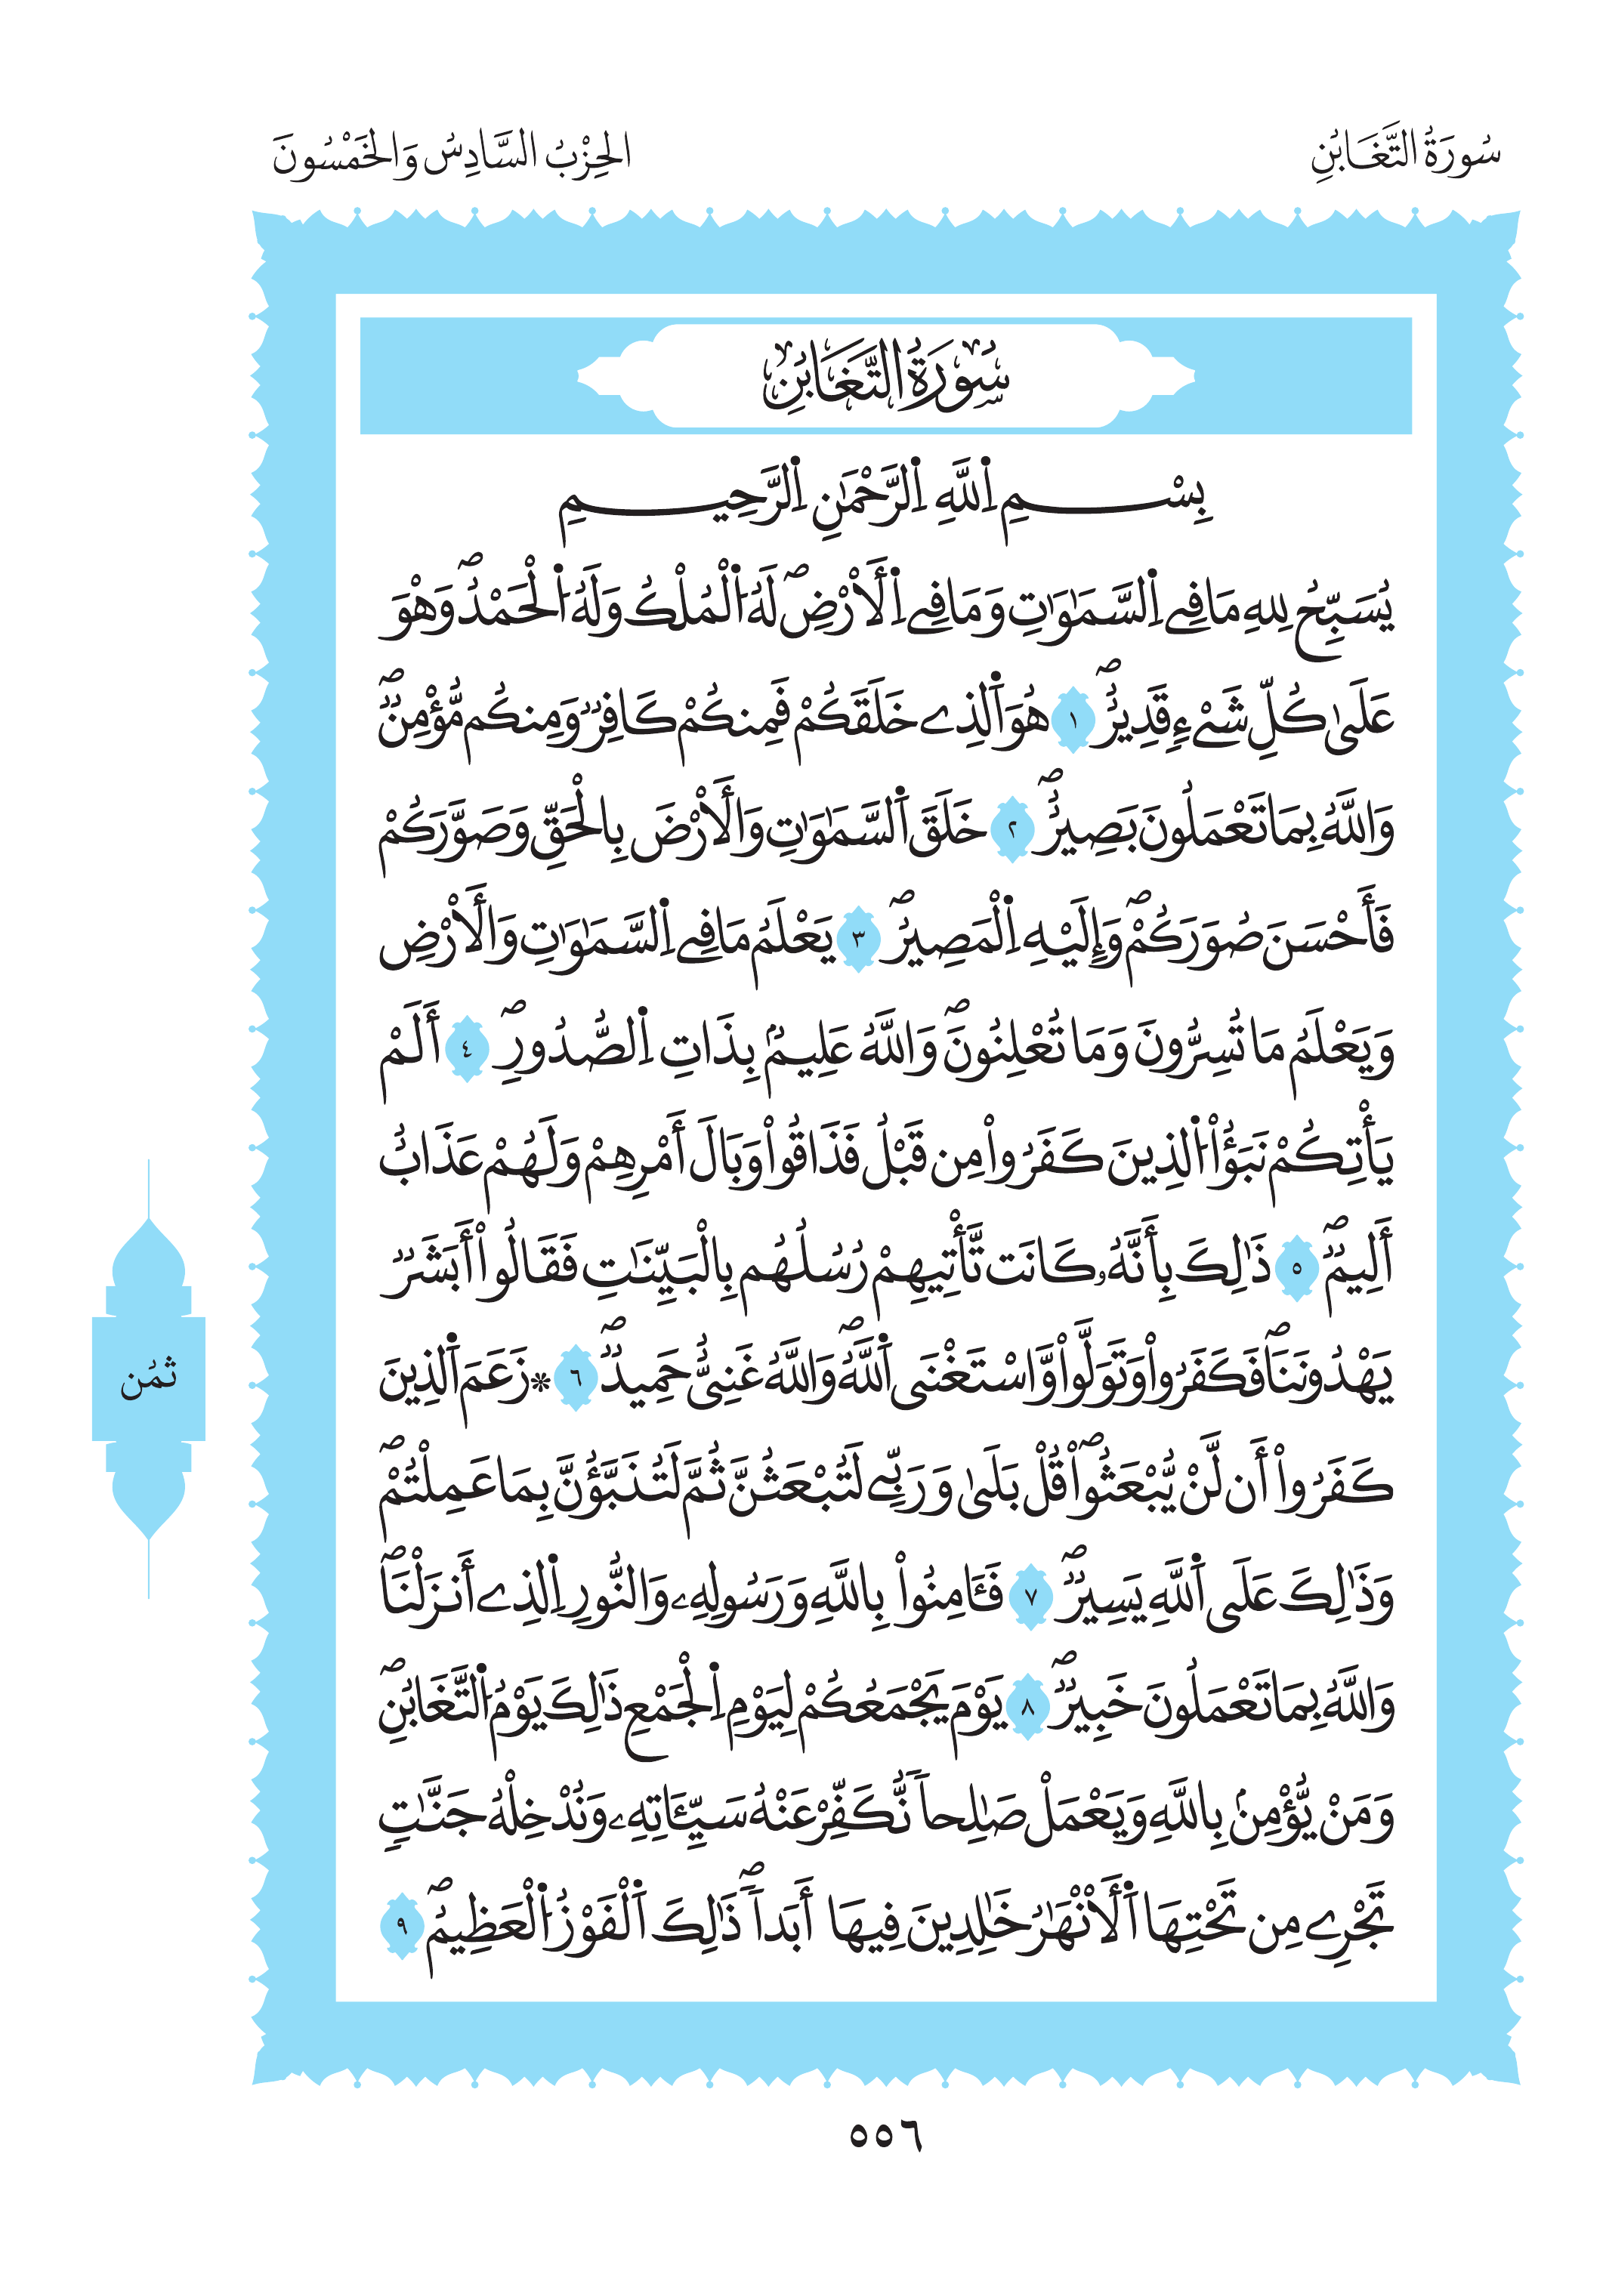 سُورَةُ التَّغَابُنِ
الحِزْبُ السَّادِسُ وَالخَمْسُونَ
سُورَةُ التَّغَابُنِ
بِسْمِ اِ۬للَّهِ اِ۬لرَّحْمَٰنِ اِ۬لرَّحِيمِ
يُسَبِّحُ لِلهِ مَا فِے اِ۬لسَّمَٰوَٰتِ وَمَا فِے اِ۬لَارْضِۖ لَهُ اُ۬لْمُلْكُ وَلَهُ اُ۬لْحَمْدُۖ وَهْوَ
عَلَىٰ كُلِّ شَےْءٖ قَدِيرٌۖ ١ هُوَ اَ۬لذِے خَلَقَكُمْ فَمِنكُمْ كَافِرٞ وَمِنكُم مُّؤْمِنٞۖ
وَاللَّهُ بِمَا تَعْمَلُونَ بَصِيرٌۖ ٢ خَلَقَ اَ۬لسَّمَٰوَٰتِ وَالَارْضَ بِالْحَقِّ وَصَوَّرَكُمْ
فَأَحْسَنَ صُوَرَكُمْۖ وَإِلَيْهِ اِ۬لْمَصِيرُۖ ٣ يَعْلَمُ مَا فِے اِ۬لسَّمَٰوَٰتِ وَالَارْضِ
وَيَعْلَمُ مَا تُسِرُّونَ وَمَا تُعْلِنُونَۖ وَاللَّهُ عَلِيمُۢ بِذَاتِ اِ۬لصُّدُورِۖ ٤ أَلَمْ
يَأْتِكُمْ نَبَؤُاْ اُ۬لذِينَ كَفَرُواْ مِن قَبْلُ فَذَاقُواْ وَبَالَ أَمْرِهِمْ وَلَهُمْ عَذَابٌ
أَلِيمٞۖ ٥ ذَٰلِكَ بِأَنَّهُۥ كَانَت تَّأْتِيهِمْ رُسُلُهُم بِالْبَيِّنَٰتِ فَقَالُواْ أَبَشَرٞ
يَهْدُونَنَاۖ فَكَفَرُواْ وَتَوَلَّواْ وَّاسْتَغْنَى اَ۬للَّهُۖ وَاللَّهُ غَنِيٌّ حَمِيدٞۖ ٦ ۞ زَعَمَ اَ۬لذِينَ
كَفَرُواْ أَن لَّنْ يُّبْعَثُواْۖ قُلْ بَلَىٰ وَرَبِّے لَتُبْعَثُنَّ ثُمَّ لَتُنَبَّؤُنَّ بِمَا عَمِلْتُمْۖ
وَذَٰلِكَ عَلَى اَ۬للَّهِ يَسِيرٞۖ ٧ فَـَٔامِنُواْ بِاللَّهِ وَرَسُولِهِۦ وَالنُّورِ اِ۬لذِے أَنزَلْنَاۖ
وَاللَّهُ بِمَا تَعْمَلُونَ خَبِيرٞۖ ٨ يَوْمَ يَجْمَعُكُمْ لِيَوْمِ اِ۬لْجَمْعِ ذَٰلِكَ يَوْمُ اُ۬لتَّغَابُنِۖ
وَمَنْ يُّؤْمِنۢ بِاللَّهِ وَيَعْمَلْ صَٰلِحاٗ نُّكَفِّرْ عَنْهُ سَيِّـَٔاتِهِۦ وَنُدْخِلْهُ جَنَّٰتٖ
تَجْرِے مِن تَحْتِهَا اَ۬لَانْهَٰرُ خَٰلِدِينَ فِيهَا أَبَداٗۖ ذَٰلِكَ اَ۬لْفَوْزُ اُ۬لْعَظِيمُۖ ٩
ثُمُن
٥٥٦